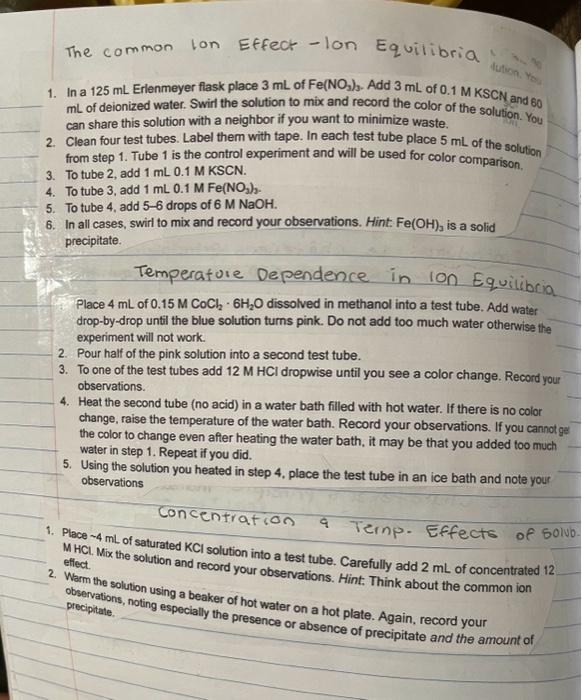 The common Ion Effect - Ion Equilibria
lution. You
1. In a 125 mL Erlenmeyer flask place 3 mL of Fe(NO₃)₃. Add 3 mL of 0.1 M KSCN and 60
mL of deionized water. Swirl the solution to mix and record the color of the solution. You
can share this solution with a neighbor if you want to minimize waste.
2. Clean four test tubes. Label them with tape. In each test tube place 5 mL of the solution
from step 1. Tube 1 is the control experiment and will be used for color comparison.
3. To tube 2, add 1 mL 0.1 M KSCN.
4. To tube 3, add 1 mL 0.1 M Fe(NO₃)₃.
5. To tube 4, add 5–6 drops of 6 M NaOH.
6. In all cases, swirl to mix and record your observations. Hint: Fe(OH)₃ is a solid
precipitate.
Temperature Dependence in Ion Equilibria
Place 4 mL of 0.15 M CoCl₂ · 6H₂O dissolved in methanol into a test tube. Add water
drop-by-drop until the blue solution turns pink. Do not add too much water otherwise the
experiment will not work.
2. Pour half of the pink solution into a second test tube.
3. To one of the test tubes add 12 M HCl dropwise until you see a color change. Record your
observations.
4. Heat the second tube (no acid) in a water bath filled with hot water. If there is no color
change, raise the temperature of the water bath. Record your observations. If you cannot get
the color to change even after heating the water bath, it may be that you added too much
water in step 1. Repeat if you did.
5. Using the solution you heated in step 4, place the test tube in an ice bath and note your
observations
Concentration & Temp. Effects of Solub.
1. Place ~4 mL of saturated KCl solution into a test tube. Carefully add 2 mL of concentrated 12
M HCl. Mix the solution and record your observations. Hint: Think about the common ion
effect.
2. Warm the solution using a beaker of hot water on a hot plate. Again, record your
observations, noting especially the presence or absence of precipitate and the amount of
precipitate.